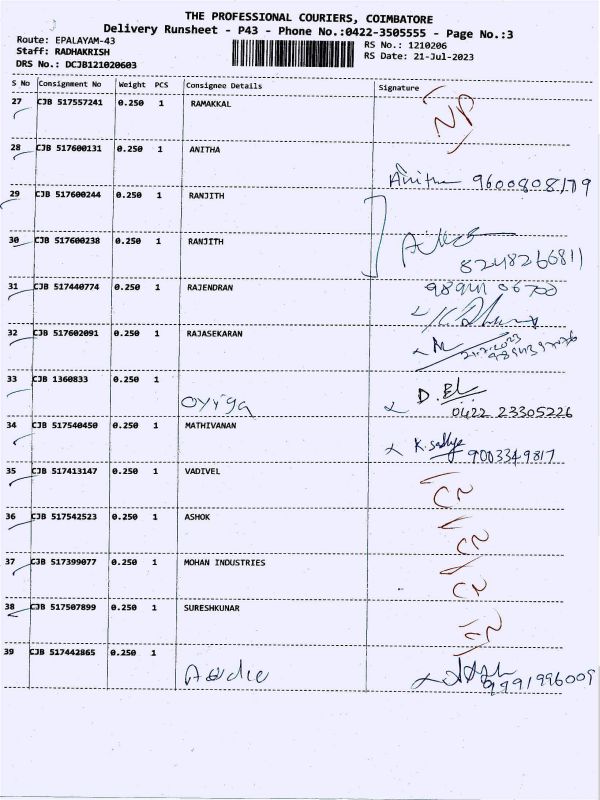 THE PROFESSIONAL COURIERS, COIMBATORE
Delivery Runsheet - P43 - Phone No.:0422-3505555 - Page No.:3
Route: EPALAYAM-43
RS No.: 1210206
Staff: RADHAKRISH
RS Date: 21-Jul-2023
DRS No.: DCJB121020603
S No Consignment No Weight PCS Consignee Details Signature
27 CJB 517557241 0.250 1 RAMAKKAL NP
28 CJB 517600131 0.250 1 ANITHA
Anitha 9600808179
29 CJB 517600244 0.250 1 RANJITH
30 CJB 517600238 0.250 1 RANJITH
8248266811
31 CJB 517440774 0.250 1 RAJENDRAN
32 CJB 517602091 0.250 1 RAJASEKARAN
21.7.2023
33 CJB 1360833 0.250 1
Oyiga
0422 23305226
34 CJB 517540450 0.250 1 MATHIVANAN
9003349817
35 CJB 517413147 0.250 1 VADIVEL
CN
36 CJB 517542523 0.250 1 ASHOK
CN
37 CJB 517399077 0.250 1 MOHAN INDUSTRIES
CN
38 CJB 517507899 0.250 1 SURESHKUNAR
CN
39 CJB 517442865 0.250 1
9991996009